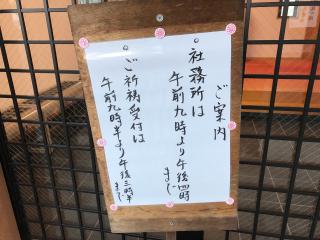 ご案内
。社務所は
午前九時より午後四時まで
。ご祈祷受付は
午前九時半より午後三時半まで